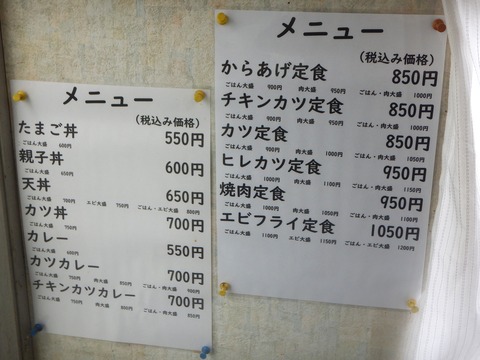 メニュー
(税込み価格)
たまご丼 550円
ごはん大盛 600円
親子丼 600円
ごはん大盛 650円
天丼 650円
ごはん大盛 700円 エビ大盛 750円 ごはん・エビ大盛 800円
カツ丼 700円
ごはん大盛
カレー 550円
ごはん大盛
カツカレー 700円
ごはん大盛 750円 肉大盛 850円 ごはん・肉大盛 900円
チキンカツカレー 700円
ごはん大盛 750円 肉大盛 800円 ごはん・肉大盛 850円
メニュー
(税込み価格)
からあげ定食 850円
ごはん大盛 900円 肉大盛 950円 ごはん・肉大盛 1000円
チキンカツ定食 850円
ごはん大盛 900円 肉大盛 950円 ごはん・肉大盛 1000円
カツ定食 850円
ごはん大盛 900円 肉大盛 1000円 ごはん・肉大盛 1050円
ヒレカツ定食 950円
ごはん大盛 1000円 肉大盛 1100円 ごはん・肉大盛 1150円
焼肉定食 950円
ごはん大盛 1000円 肉大盛 1050円 ごはん・肉大盛 1100円
エビフライ定食 1050円
ごはん大盛 1100円 エビ大盛 1150円 ごはん・エビ大盛 1200円